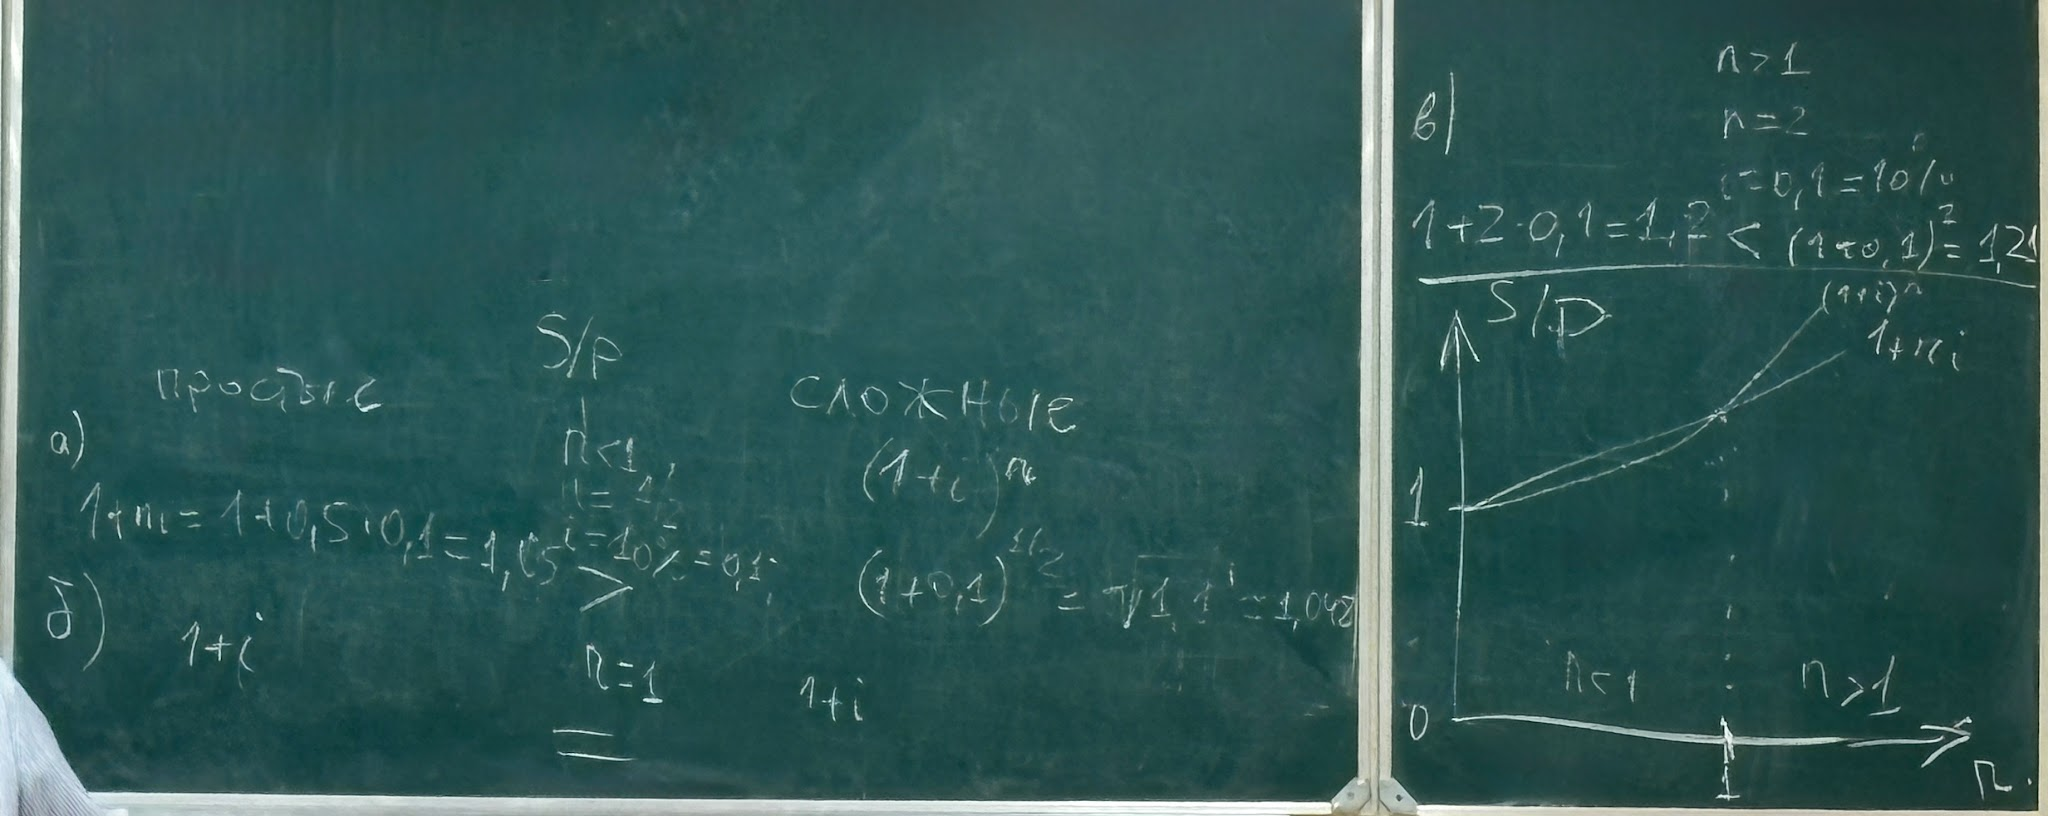 S/p
простые
сложные
а)
n<1
(1+i)^n
n=1/2
1+ni=1+0,5·0,1=1,05
i=10%=0,1
>
(1+0,1)^{1/2} = √1,1 = 1,048
б)
1+i
n=1
1+i
=
n>1
в)
n=2
i=0,1=10%
1+2·0,1=1,2 < (1+0,1)^2=1,21
S/P
(1+i)^n
1+ni
1
n<1
n>1
0
1
n